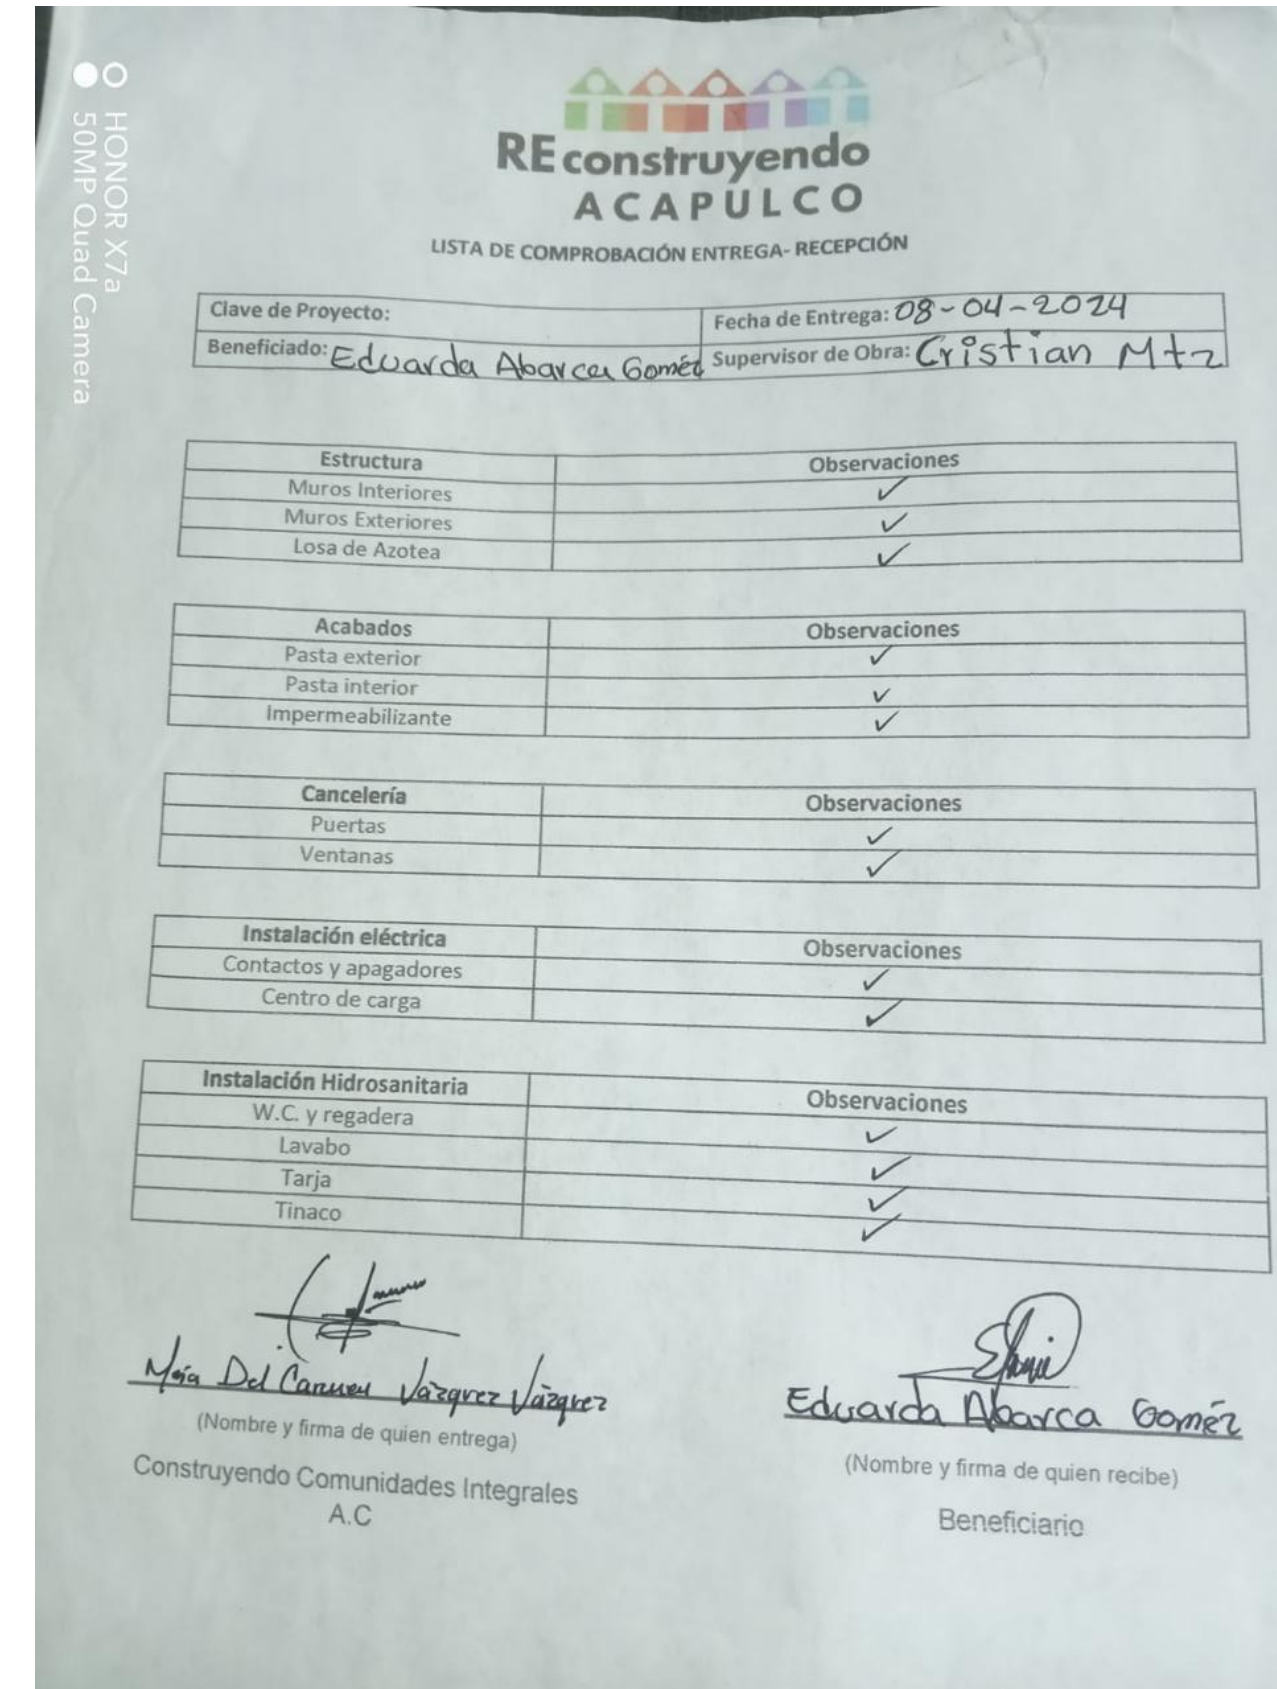 HONOR X7a
50MP Quad Camera
REconstruyendo
ACAPULCO
LISTA DE COMPROBACIÓN ENTREGA- RECEPCIÓN
Clave de Proyecto:
Fecha de Entrega: 08-04-2024
Beneficiado: Eduarda Abarca Goméz
Supervisor de Obra: Cristian Mtz
Estructura Observaciones
Muros Interiores ✓
Muros Exteriores ✓
Losa de Azotea ✓
Acabados Observaciones
Pasta exterior ✓
Pasta interior ✓
Impermeabilizante ✓
Cancelería Observaciones
Puertas ✓
Ventanas ✓
Instalación eléctrica Observaciones
Contactos y apagadores ✓
Centro de carga ✓
Instalación Hidrosanitaria Observaciones
W.C. y regadera ✓
Lavabo ✓
Tarja ✓
Tinaco ✓
Del Carmen Vázquez Vázquez
(Nombre y firma de quien entrega)
Construyendo Comunidades Integrales
A.C
Eduarda Abarca Goméz
(Nombre y firma de quien recibe)
Beneficiario